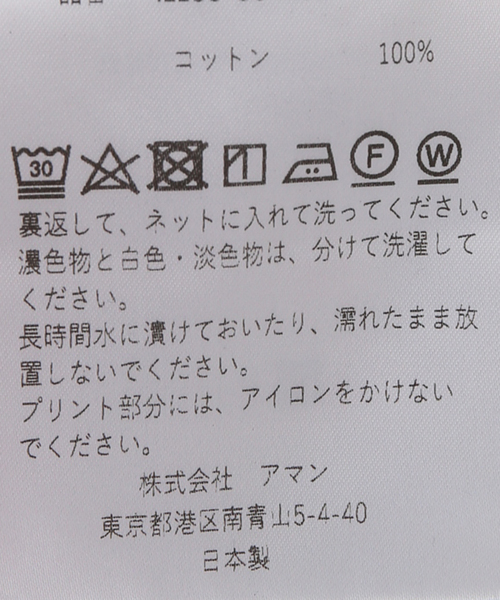 コットン 100%
30 F W
裏返して、ネットに入れて洗ってください。
濃色物と白色・淡色物は、分けて洗濯して
ください。
長時間水に漬けておいたり、濡れたまま放
置しないでください。
プリント部分には、アイロンをかけない
でください。
株式会社 アマン
東京都港区南青山5-4-40
日本製